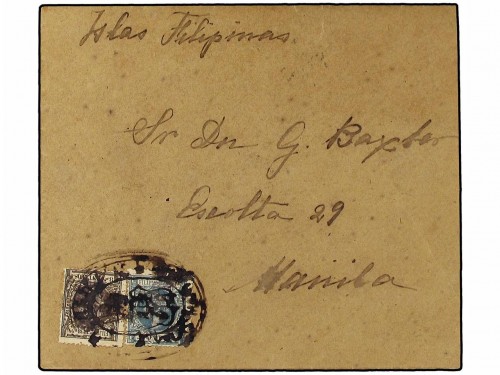 Islas Filipinas
Sr Dn G. Baxter
Escolta 29
Manila